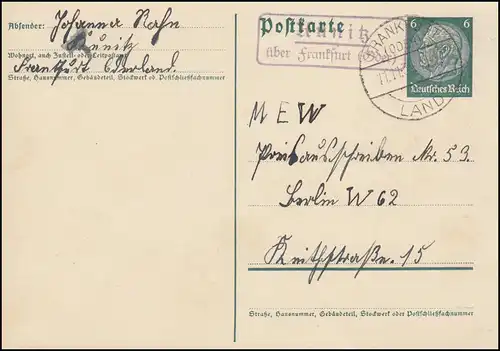 Absender: Johanna Rahn
Kunitz
Wohnort, auch Zustell- oder Leitpostamt
Frankfurt Oderland.
Straße, Hausnummer, Gebäudeteil, Stockwerk od. Postschließfachnummer
Postkarte
Kunitz
über Frankfurt
FRANKFURT
LAND
6 6
Deutsches Reich
MEW
Preisausschreiben Nr. 53.
Berlin W 62
Keithstraße. 15
Straße, Hausnummer, Gebäudeteil, Stockwerk oder Postschließfachnummer